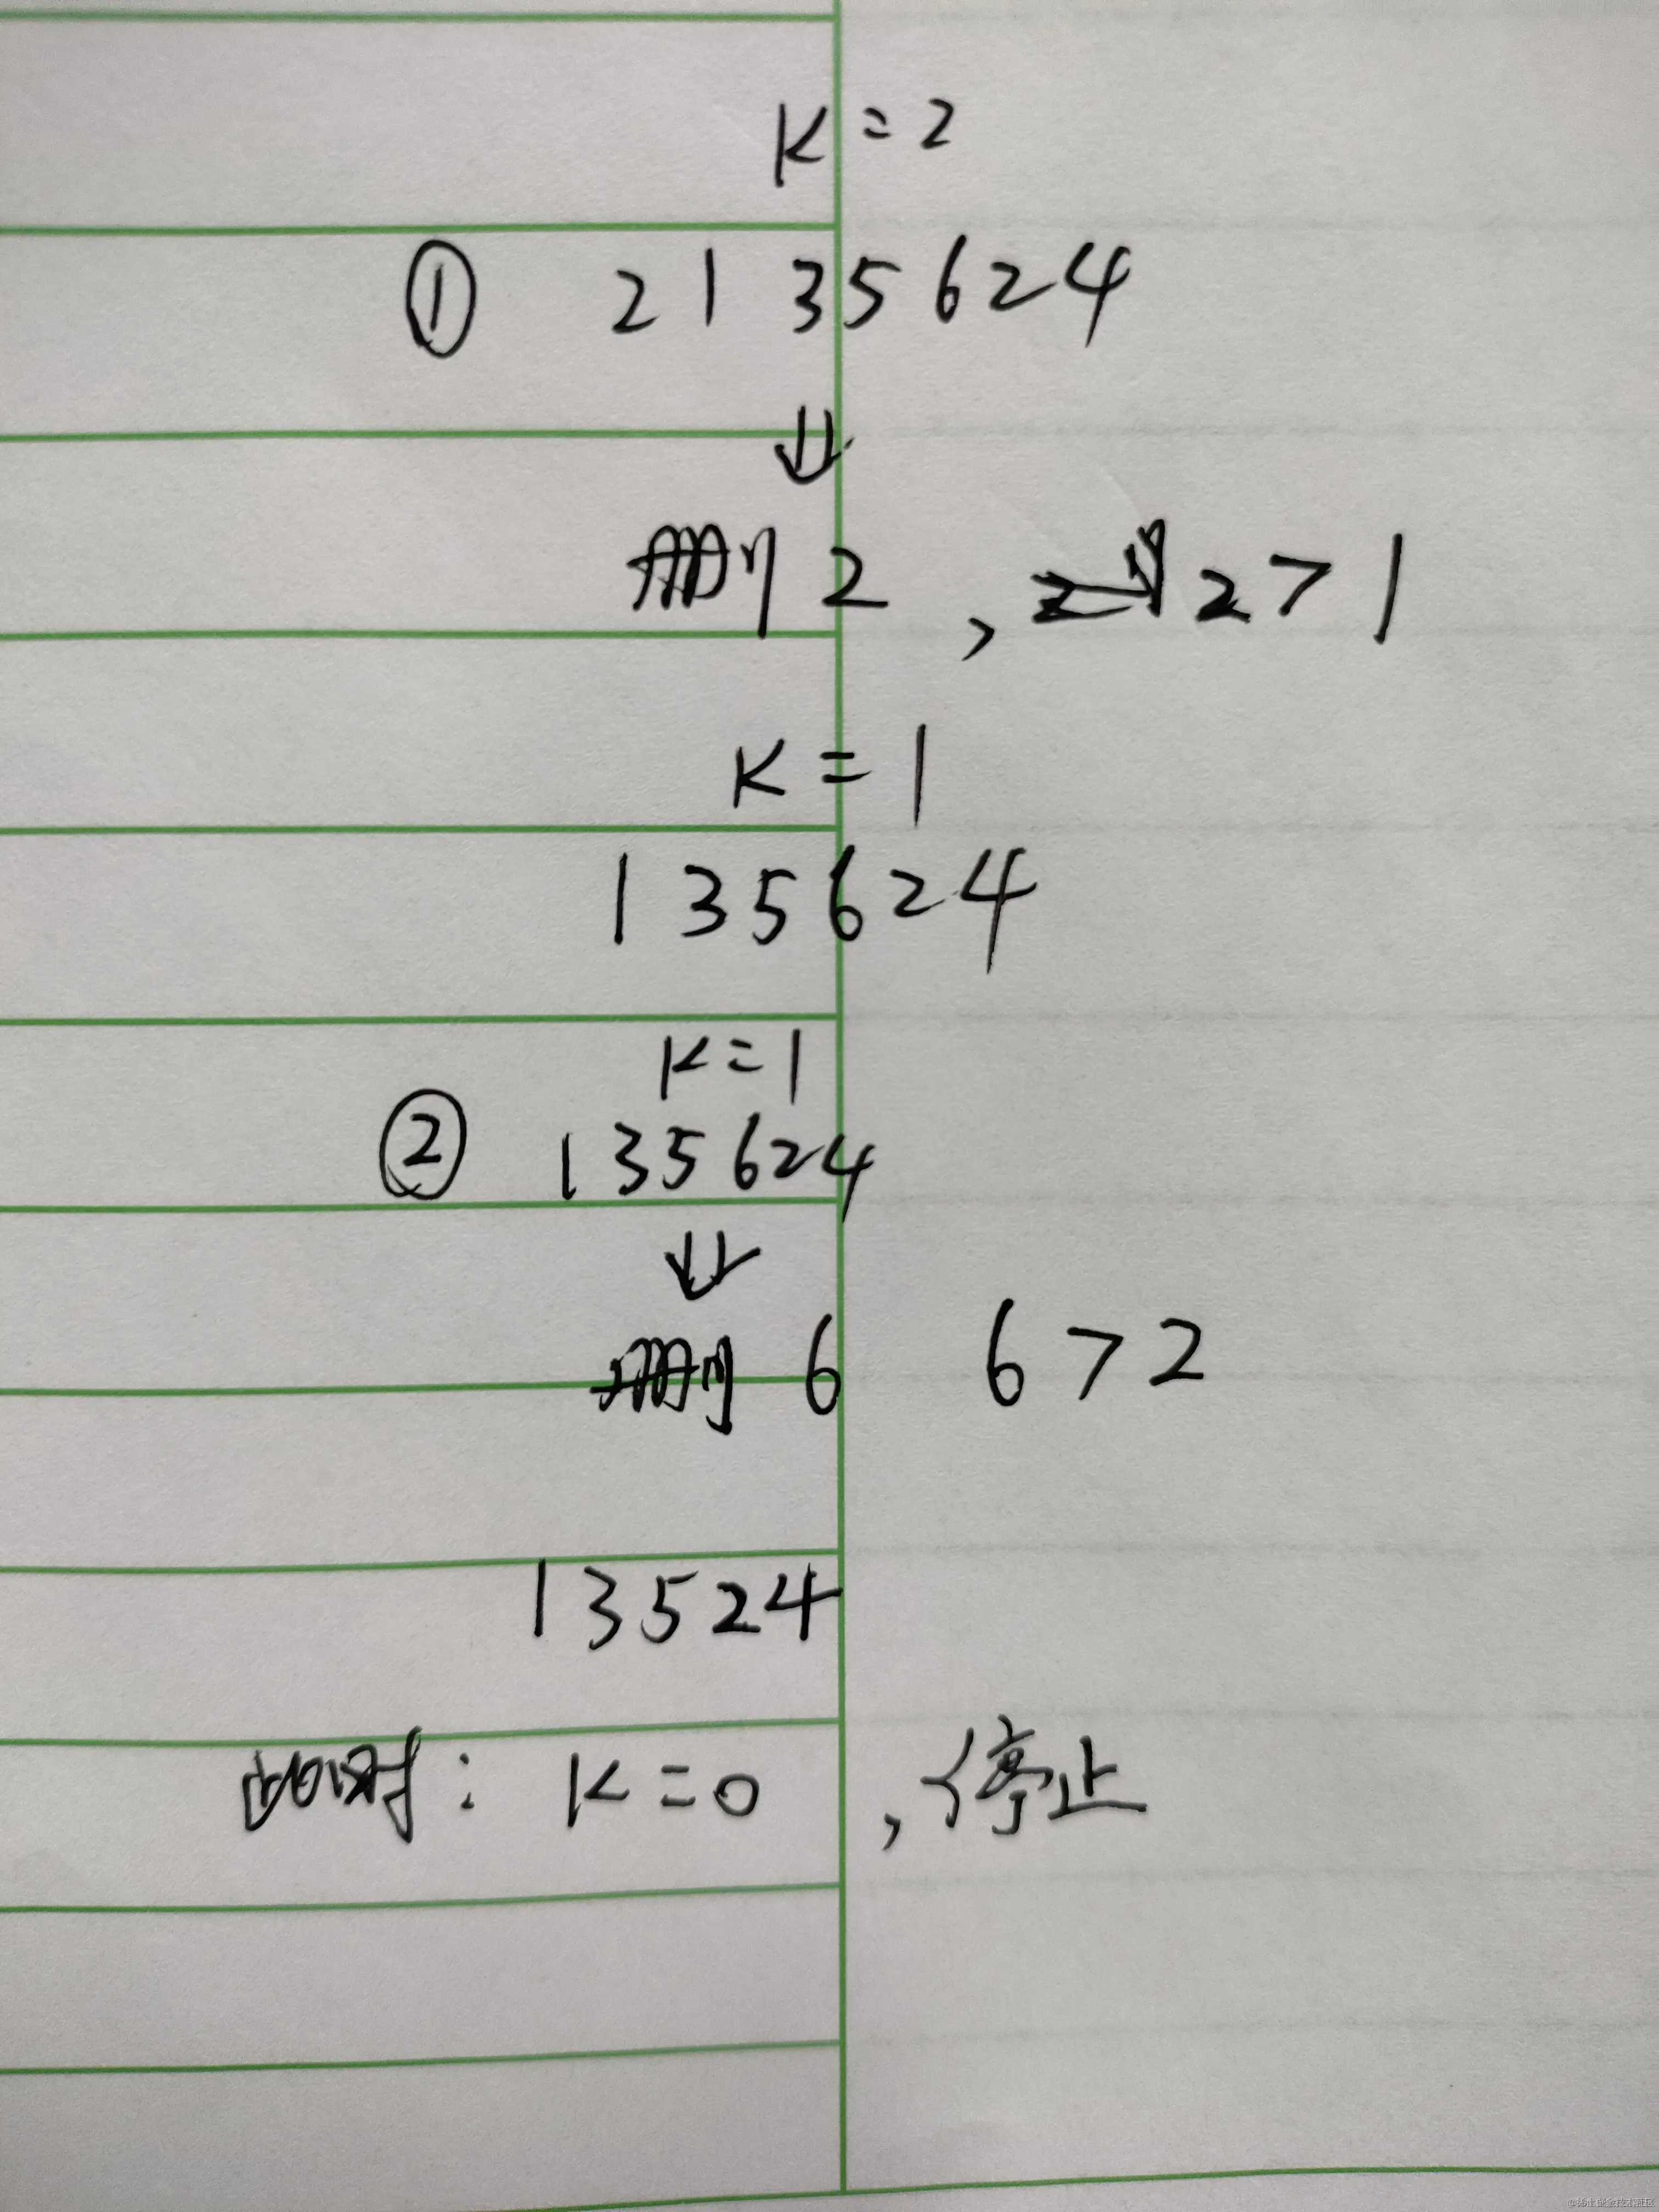 K=2
① 2135624
⇓
删2, 2>1
K=1
135624
K=1
② 135624
⇓
删6 6>2
13524
此时: K=0, 停止
@稀土掘金技术社区